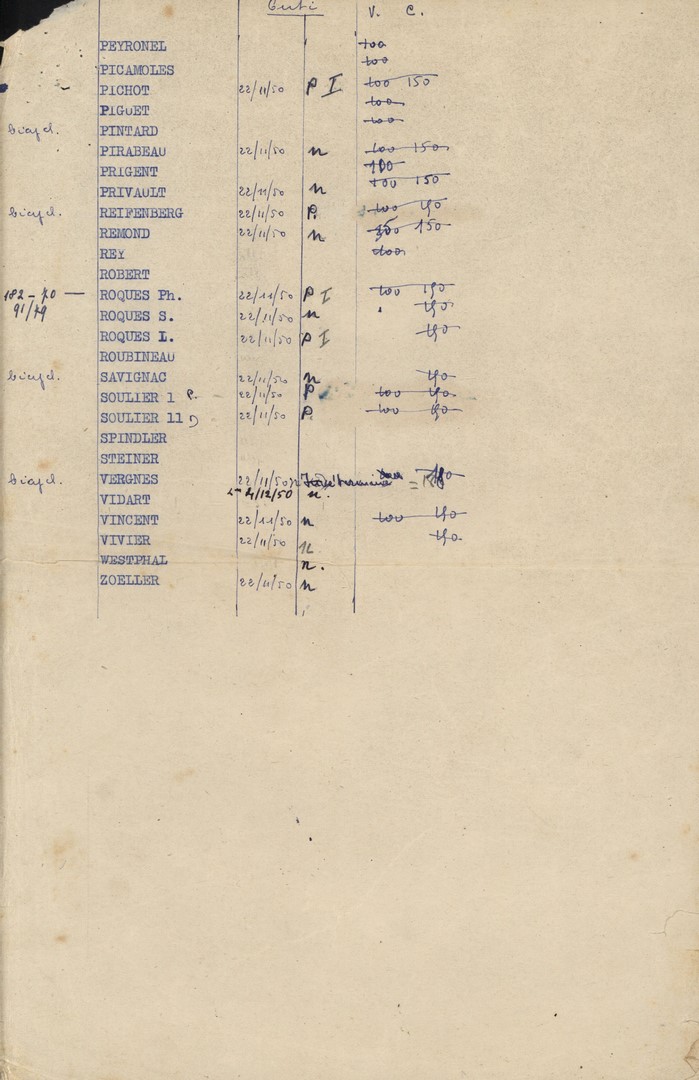 Cuti V. C.
PEYRONEL 100
PICAMOLES 100
PICHOT 22/11/50 P I 100 150
PIGUET 100
PINTARD 100
PIRABEAU 22/11/50 n 100 150
PRIGENT 100
PRIVAULT 22/11/50 n 100 150
REIFENBERG 22/11/50 P. 100 150
REMOND 22/11/50 n 150
REY 100
ROBERT
182-70 — ROQUES Ph. 22/11/50 P I 100 150
91/79 ROQUES S. 22/11/50 n 150
ROQUES L. 22/11/50 P I 150
ROUBINEAU
SAVIGNAC 22/11/50 n 150
SOULIER 1 P. 22/11/50 P 100 150
SOULIER 11 D 22/11/50 P. 100 150
SPINDLER
STEINER
VERGNES 22/11/50 150
VIDART 4/12/50 n.
VINCENT 22/11/50 n 100 150
VIVIER 22/11/50 n 150
WESTPHAL n.
ZOELLER 22/11/50 n